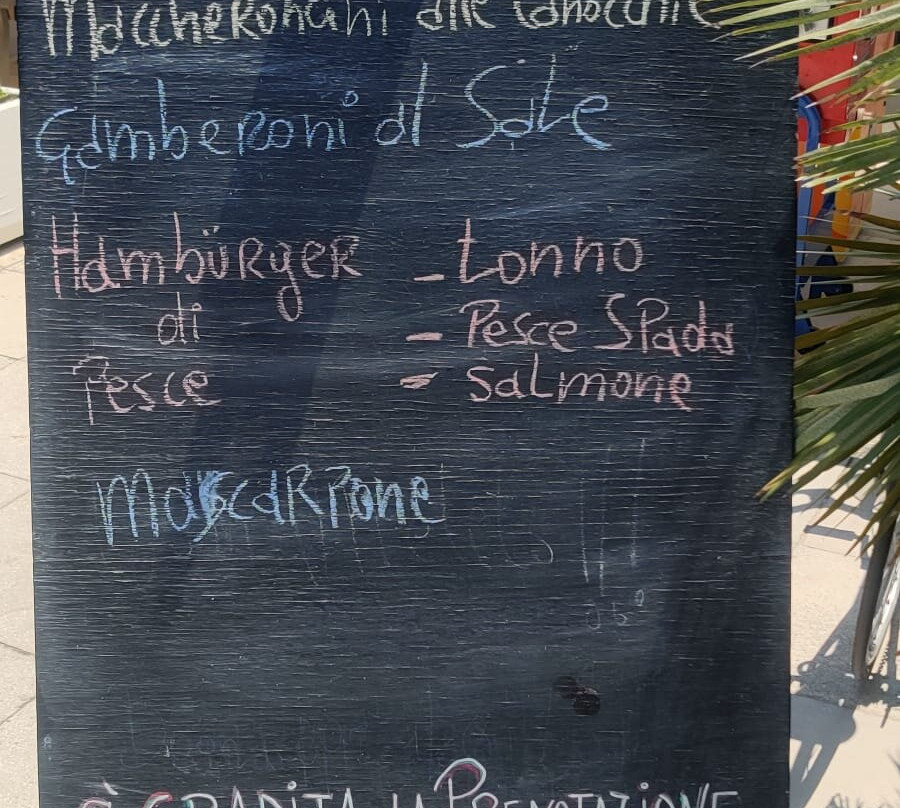 Maccheroncini alle canocchie
Gamberoni al Sale
Hambürger - tonno
di - Pesce SPada
Pesce - salmone
MascaRPone
è GRADITA LA PRENOTAZIONE